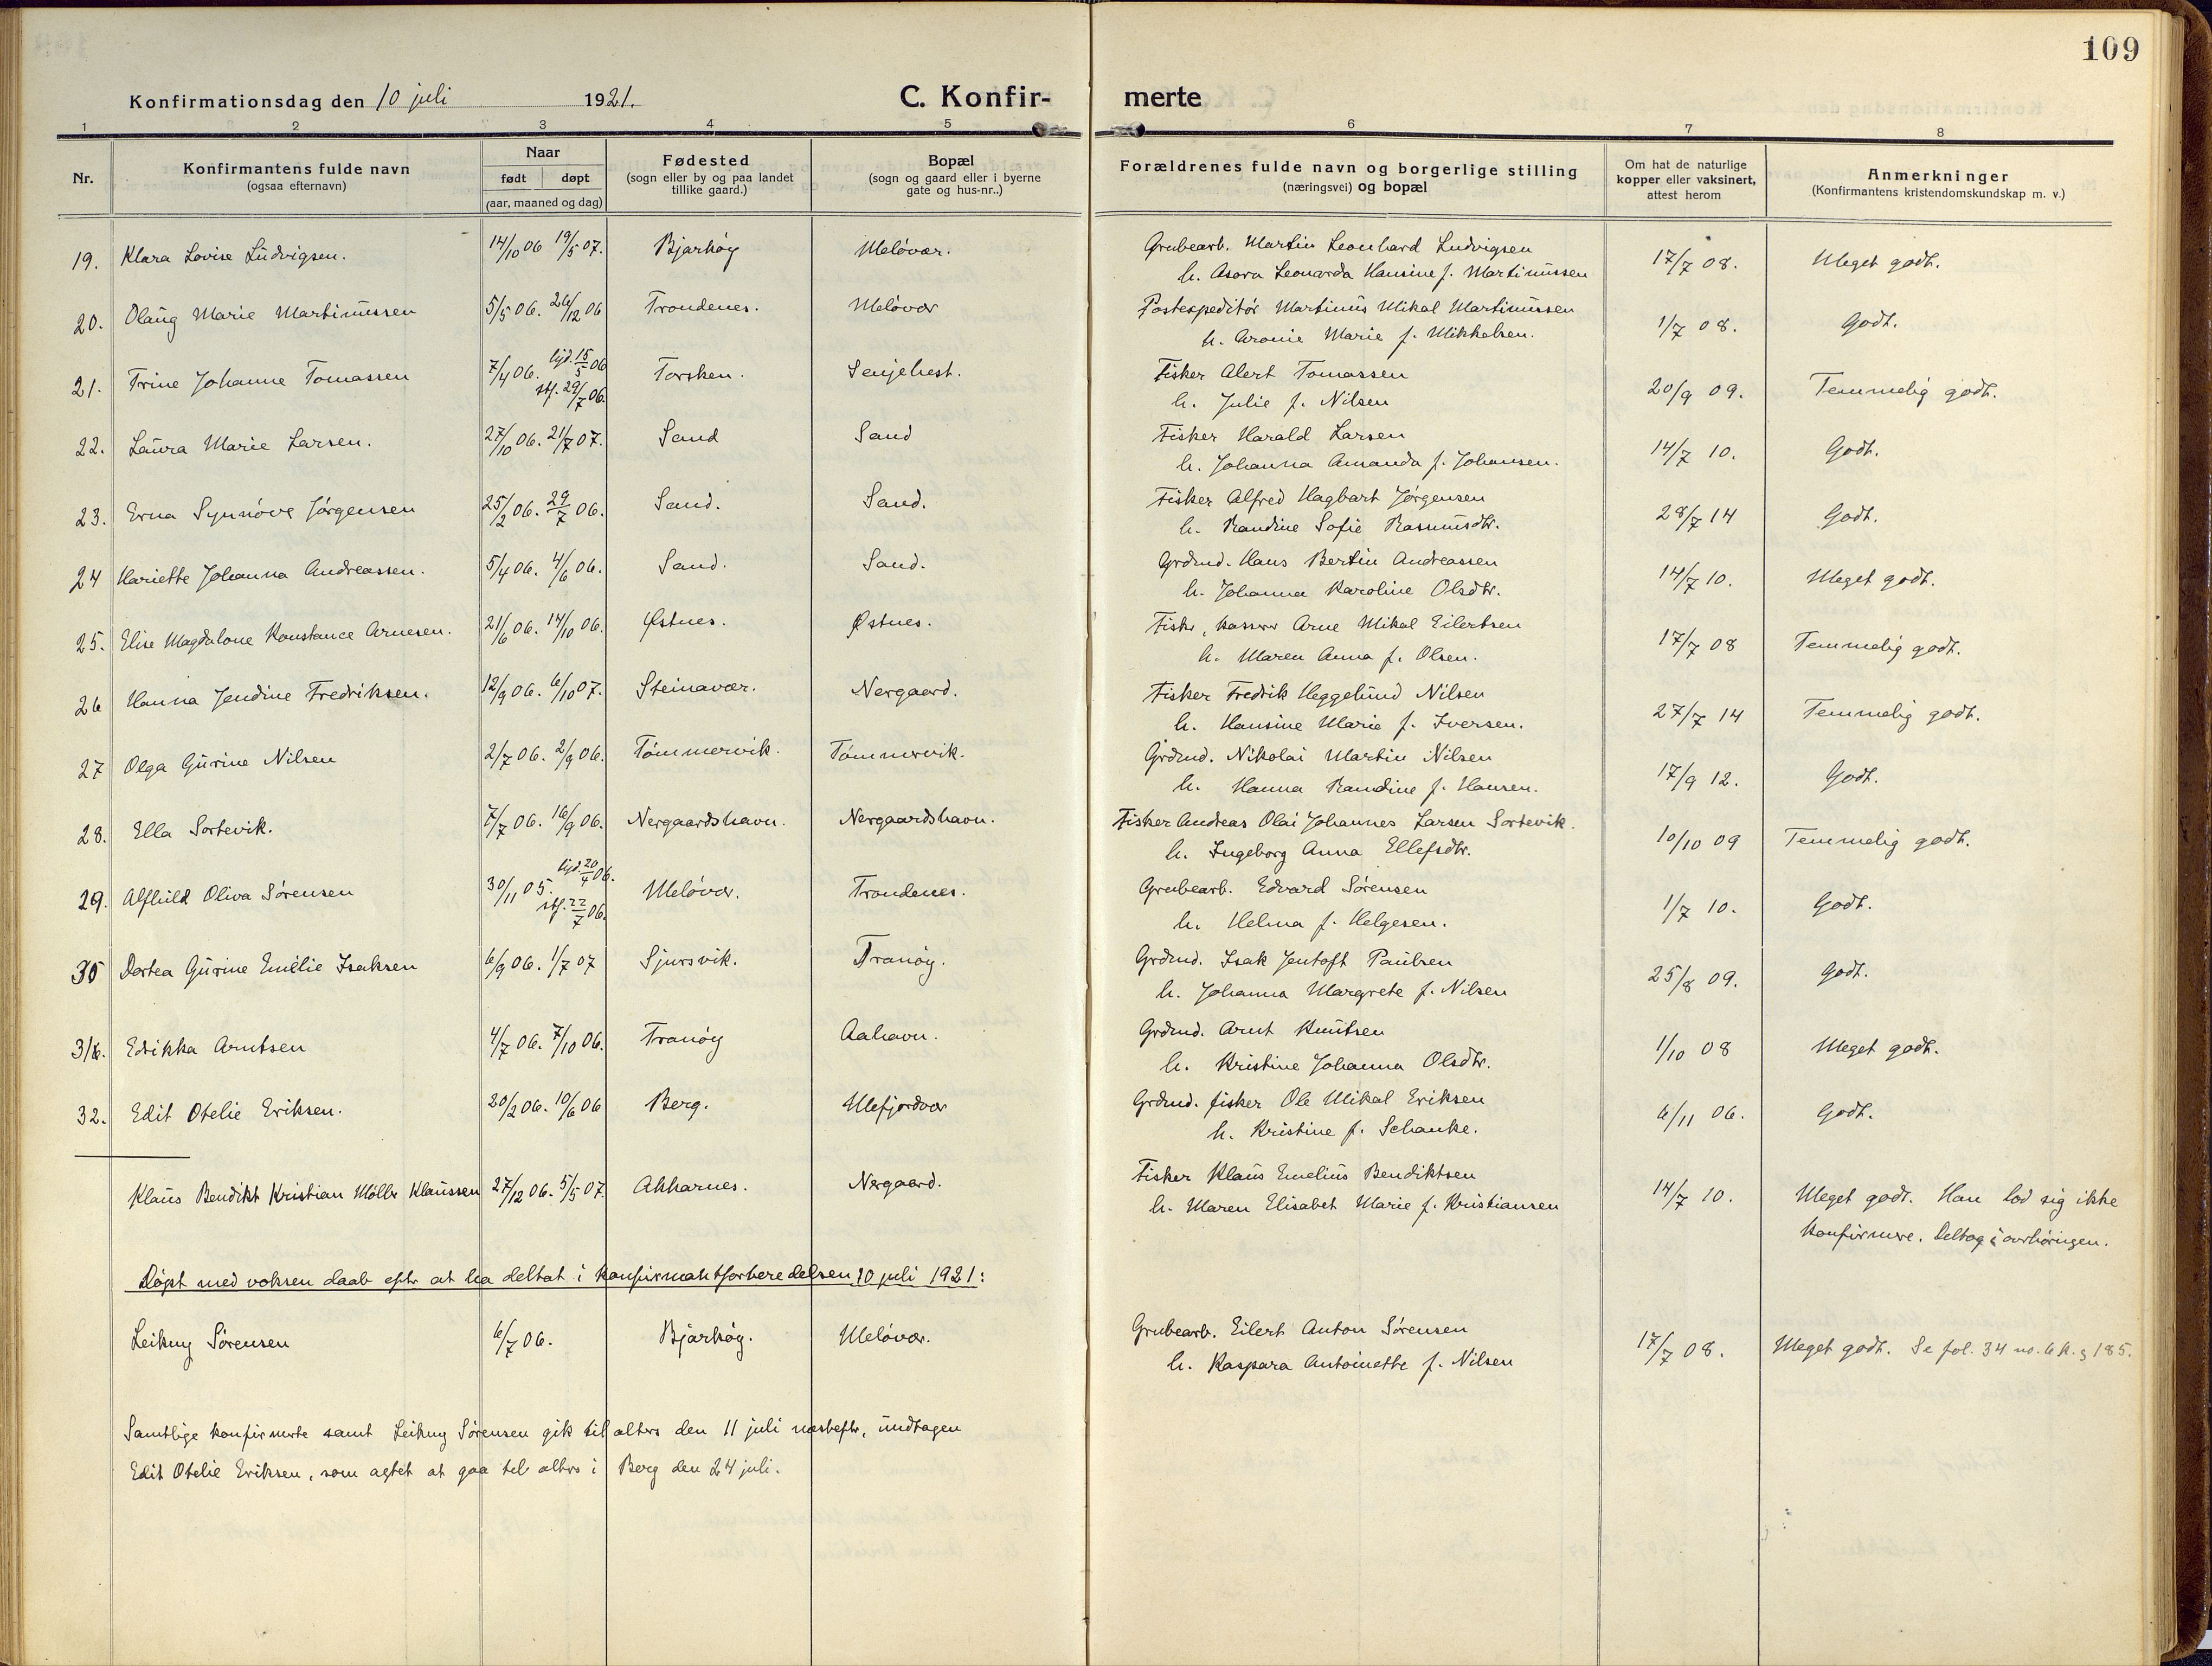 109
Konfirmationsdag den 10 juli 1921. C. Konfir- merte
1 2 3 4 5 6 7 8
Nr.
Konfirmantens fulde navn
(ogsaa efternavn)
Naar
født døpt
(aar, maaned og dag)
Fødested
(sogn eller by og paa landet
tillike gaard.)
Bopæl
(sogn og gaard eller i byerne
gate og hus-nr..)
Forældrenes fulde navn og borgerlige stilling
(næringsvei) og bopæl
Om hat de naturlige
kopper eller vaksinert,
attest herom
Anmerkninger
(Konfirmantens kristendomskundskap m. v.)
19. Klara Lovise Ludvigsen. 14/10 06 19/5 07. Bjarkøy Meløvær. Grubearb. Martin Leonhard Ludvigsen 17/7 08. Meget godt.
h. Asora Leonarda Hansine f. Martinussen
20. Olaug Marie Martinussen 5/5 06. 26/12 06 Trondenes. Meløvær Postexpeditør Martinus Mikal Martinussen 1/7 08. Godt.
h. Aronie Marie f. Mikkelsen.
21. Trine Johanne Tomassen 7/4 06. hjd. 15/5 06 Torsken. Senjehest. Fisker Alert Tomassen 20/9 09. Temmelig godt.
stf. 29/7 06. h. Julie f. Nilsen
22. Laura Marie Larsen. 27/10 06. 21/7 07. Sand Sand Fisker Harald Larsen 14/7 10. Godt.
h. Johanna Amanda f. Johansen.
23. Erna Synnøve Jørgensen 25/2 06. 29/7 06. Sand. Sand. Fisker Alfred Hagbart Jørgensen 28/7 14 Godt.
h. Randine Sofie Rasmusdtr.
24 Hariette Johanna Andreassen. 5/4 06. 4/6 06. Sand. Sand. Grdmd. Hans Bertin Andreassen 14/7 10. Meget godt.
h. Johanna Karoline Olsdtr.
25. Elise Magdalone Konstance Arnesen. 21/6 06. 14/10 06. Østnes. Østnes. Fisker, kasserer Arne Mikal Eilertsen 17/7 08 Temmelig godt.
h. Maren Anna f. Olsen.
26 Hanna Jendine Fredriksen. 12/9 06. 6/10 07. Steinavær. Nergaard. Fisker Fredrik Heggelund Nilsen 27/7 14 Temmelig godt.
h. Hansine Marie f. Iversen.
27 Olga Gurine Nilsen 2/7 06. 2/9 06. Tømmervik. Tømmervik. Grdmd. Nikolai Martin Nilsen 17/9 12. Godt.
h. Hanna Randine f. Hansen.
28. Ella Sortevik. 7/7 06. 16/9 06. Nergaardshavn. Nergaardshavn. Fisker Andreas Olai Johannes Larsen Sortevik. 10/10 09 Temmelig godt.
h. Ingeborg Anna Ellefsdtr.
29. Alfhild Oliva Sørensen 30/11 05. hjd. 20/4 06. Meløvær. Trondenes. Grubearb. Edvard Sørensen 1/7 10. Godt.
stf. 22/7 06. h. Helma f. Helgesen.
30 Dortea Gurine Emelie Isaksen 6/9 06. 1/7 07 Sjursvik. Tranøy. Grdmd. Isak Jentoft Paulsen 25/8 09. Godt.
h. Johanna Margrete f. Nilsen
31. Edikka Arntsen 4/7 06. 7/10 06. Tranøy Aahavn. Grdmd. Arnt Knutsen 1/10 08 Meget godt.
h. Kristine Johanna Olsdtr.
32. Edit Otelie Eriksen. 20/2 06. 10/6 06 Berg. Mefjordvær Grdmd. fisker Ole Mikal Eriksen 6/11 06. Godt.
h. Kristine f. Schanke.
Klaus Bendikt Kristian Møller Klaussen 27/12 06. 5/5 07. Akkarnes. Nergaard. Fisker Klaus Emelius Bendiktsen 14/7 10. Meget godt. Han lod sig ikke
h. Maren Elisabet Marie f. Kristiansen konfirmere. Deltog i overhøringen.
Døpt med voksen daab efter at ha deltat i konfirmantforberedelsen 10 juli 1921:
Leikny Sørensen 6/7 06. Bjarkøy. Meløvær. Grubearb. Eilert Anton Sørensen 17/7 08. Meget godt. Se fol. 34 no. 6 k. s 185.
h. Kaspara Antoinette f. Nilsen
Samtlige konfirmerte samt Leikny Sørensen gik til alters den 11 juli næstefter, undtagen
Edit Otelie Eriksen, som agtet at gaa til alters i Berg den 24 juli.